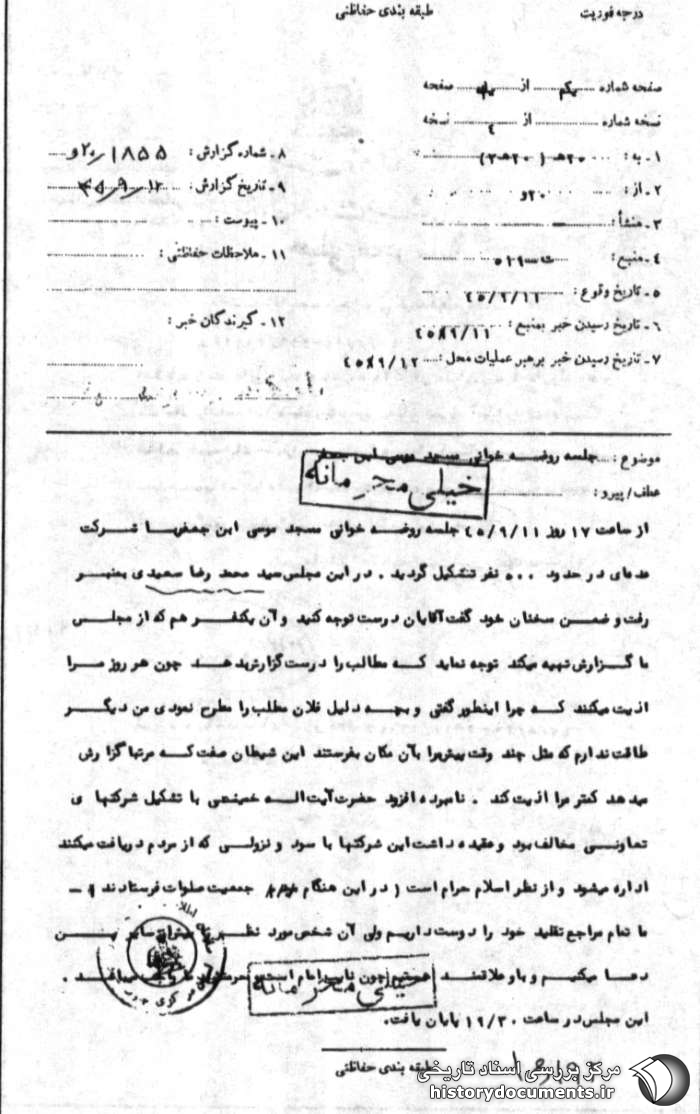 درجه فوریت
طبقه بندی حفاظتی
صفحه شماره یکم از یک صفحه
نسخه شماره از ٤ نسخه
١ - به : ٢٠هـ ( ٢٠هـ٣ )
٢ - از : ٢٠و
٣ - منشأ :
٤ - منبع :
٥ - تاریخ وقوع : ٤٥/٩/١١
٦ - تاریخ رسیدن خبر بمنبع : ٤٥/٩/١١
٧ - تاریخ رسیدن خبر برهبر عملیات محل : ٤٥/٩/١٢
٨ - شماره گزارش : ١٨٥٥/٢٠و
٩ - تاریخ گزارش : ٤٥/٩/١٢
١٠ - پیوست :
١١ - ملاحظات حفاظتی :
١٢ - گیرندگان خبر :
موضوع : جلسه روضه خوانی مسجد موسی ابن جعفر
خیلی محرمانه
عطف / پیرو :
از ساعت ١٧ روز ٤٥/٩/١١ جلسه روضه خوانی مسجد موسی ابن جعفر با شرکت
عدهای در حدود ٥٠٠ نفر تشکیل گردید . در این مجلس سید محمد رضا سعیدی بمنبر
رفت و ضمن سخنان خود گفت آقایان درست توجه کنید و آن یکنفر هم که از مجلس
ما گزارش تهیه میکند توجه نماید که مطالب را درست گزارش بدهد چون هر روز مرا
اذیت میکنند که چرا اینطور گفتی و بچه دلیل فلان مطلب را مطرح نمودی من دیگر
طاقت ندارم که مثل چند وقت پیش مرا بآن مکان بفرستند این شیطان صفت که مرتبا گزارش
میدهد کمتر مرا اذیت کند . نامبرده افزود حضرت آیت اله خمینی با تشکیل شرکتهای
تعاونی مخالف بود و عقیده داشت این شرکتها با سود و نزولی که از مردم دریافت میکنند
اداره میشود و از نظر اسلام حرام است ( در این هنگام جمعیت صلوات فرستادند ) -
ما تمام مراجع تقلید خود را دوست داریم ولی آن شخص مورد نظر
دعا میکنیم و باو علاقمند هستیم چون نایب امام است
خیلی محرمانه
این مجلس در ساعت ١٩/٣٠ پایان یافت.
طبقه بندی حفاظتی
مرکز بررسی اسناد تاریخی
historydocuments.ir